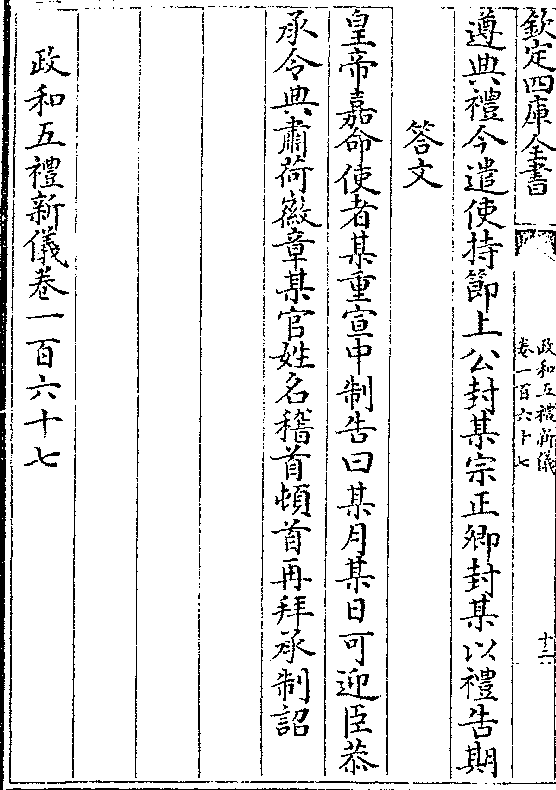 欽定四庫全書
政和五禮新儀
卷一百六十七
十二
遵典禮今遣使持節上公封某宗正卿封某以禮告期
答文
皇帝嘉命使者某重宣中制告曰某月某日可迎臣恭
承令典肅荷徽章某官姓名稽首頓首再拜承制詔
政和五禮新儀卷一百六十七